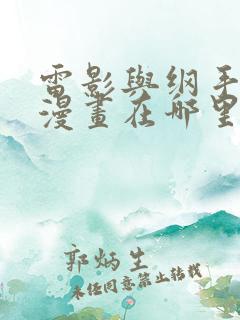 電影與綱手
漫畫在哪里
郭炳生
未经同意禁止转载